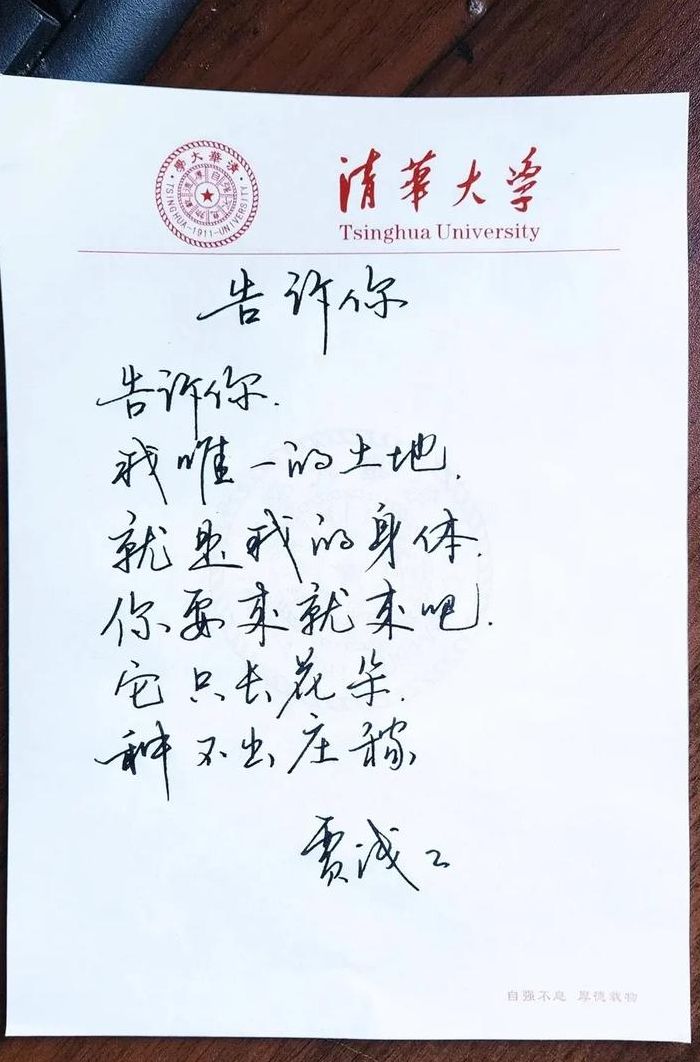 清華大學
TSINGHUA-1911-UNIVERSITY
清华大学
Tsinghua University
告诉你
告诉你.
我唯一的土地.
就是我的身体.
你要来就来吧.
它只长花朵.
种不出庄稼
贾浅二
自强不息 厚德载物